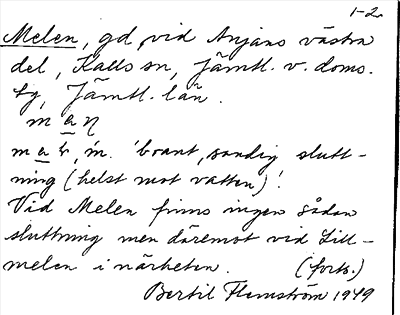 1-2
Melen, gd vid Anjans västra
del, Kalls sn, Jämtl. v. doms.
tg, Jämtl. län.
m a ŋ
m a l, m. 'brant, sandig slutt-
ning (helst mot vatten)'.
Vid Melen finns ingen sådan
sluttning men däremot vid Lill-
melen i närheten. (forts.)
Bertil Flemström 1949